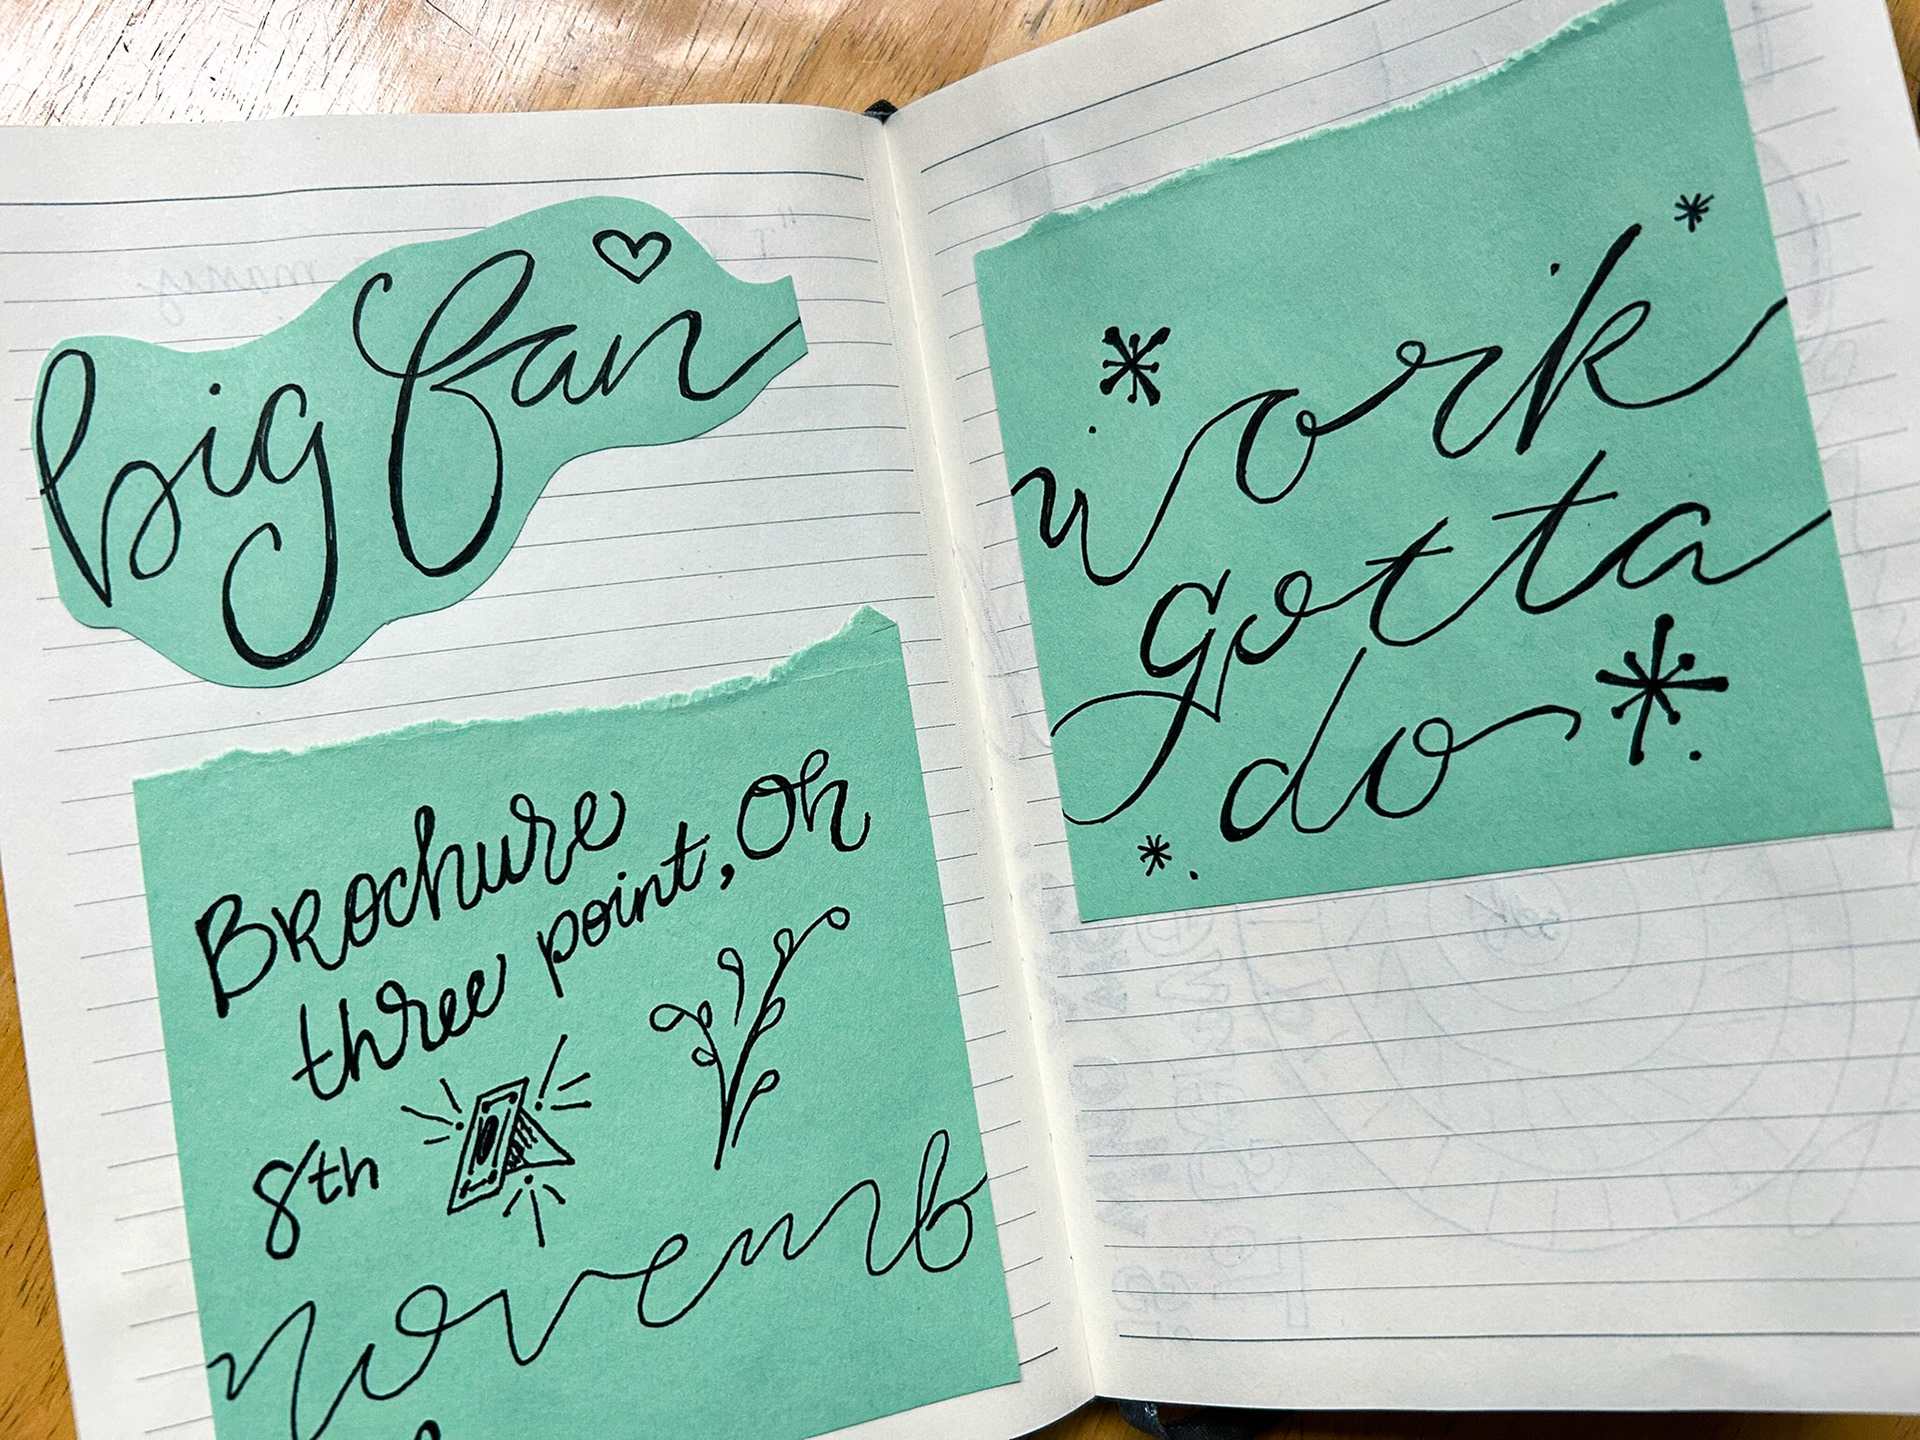 big fan
Brochure
three point, Oh
8th
Novemb
work
gotta
do